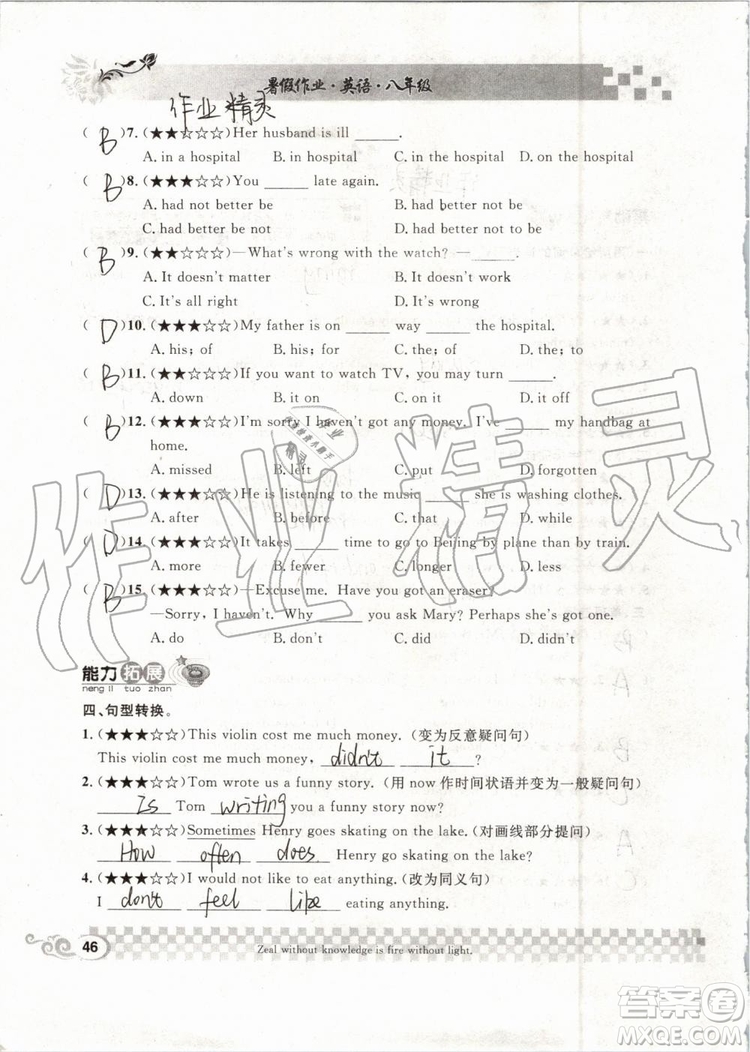 暑假作业·英语·八年级
作业精灵
( B )7. (★★☆☆☆)Her husband is ill ______.
A. in a hospital B. in hospital C. in the hospital D. on the hospital
( B )8. (★★★☆☆)You ______ late again.
A. had not better be B. had better not be
C. had better be not D. had better not to be
( B )9. (★★☆☆☆)—What's wrong with the watch? —______.
A. It doesn't matter B. It doesn't work
C. It's all right D. It's wrong
( D )10. (★★★☆☆)My father is on ______ way ______ the hospital.
A. his; of B. his; for C. the; of D. the; to
( B )11. (★★☆☆☆)If you want to watch TV, you may turn ______.
A. down B. it on C. on it D. it off
( B )12. (★★★☆☆)I'm sorry I haven't got any money. I've ______ my handbag at
home.
A. missed B. left C. put D. forgotten
( D )13. (★★★☆☆)He is listening to the music ______ she is washing clothes.
A. after B. before C. that D. while
( D )14. (★★★☆☆)It takes ______ time to go to Beijing by plane than by train.
A. more B. fewer C. longer D. less
( B )15. (★★★☆☆)—Excuse me. Have you got an eraser?
—Sorry, I haven't. Why ______ you ask Mary? Perhaps she's got one.
A. do B. don't C. did D. didn't
能力拓展
neng li tuo zhan
四、句型转换。
1. (★★★☆☆)This violin cost me much money. (变为反意疑问句)
This violin cost me much money, didn't it?
2. (★★★☆☆)Tom wrote us a funny story. (用 now 作时间状语并变为一般疑问句)
Is Tom writing you a funny story now?
3. (★★★☆☆)Sometimes Henry goes skating on the lake. (对画线部分提问)
How often does Henry go skating on the lake?
4. (★★★☆☆)I would not like to eat anything. (改为同义句)
I don't feel like eating anything.
46 Zeal without knowledge is fire without light.
作业精灵
答案圈
MXQE.COM